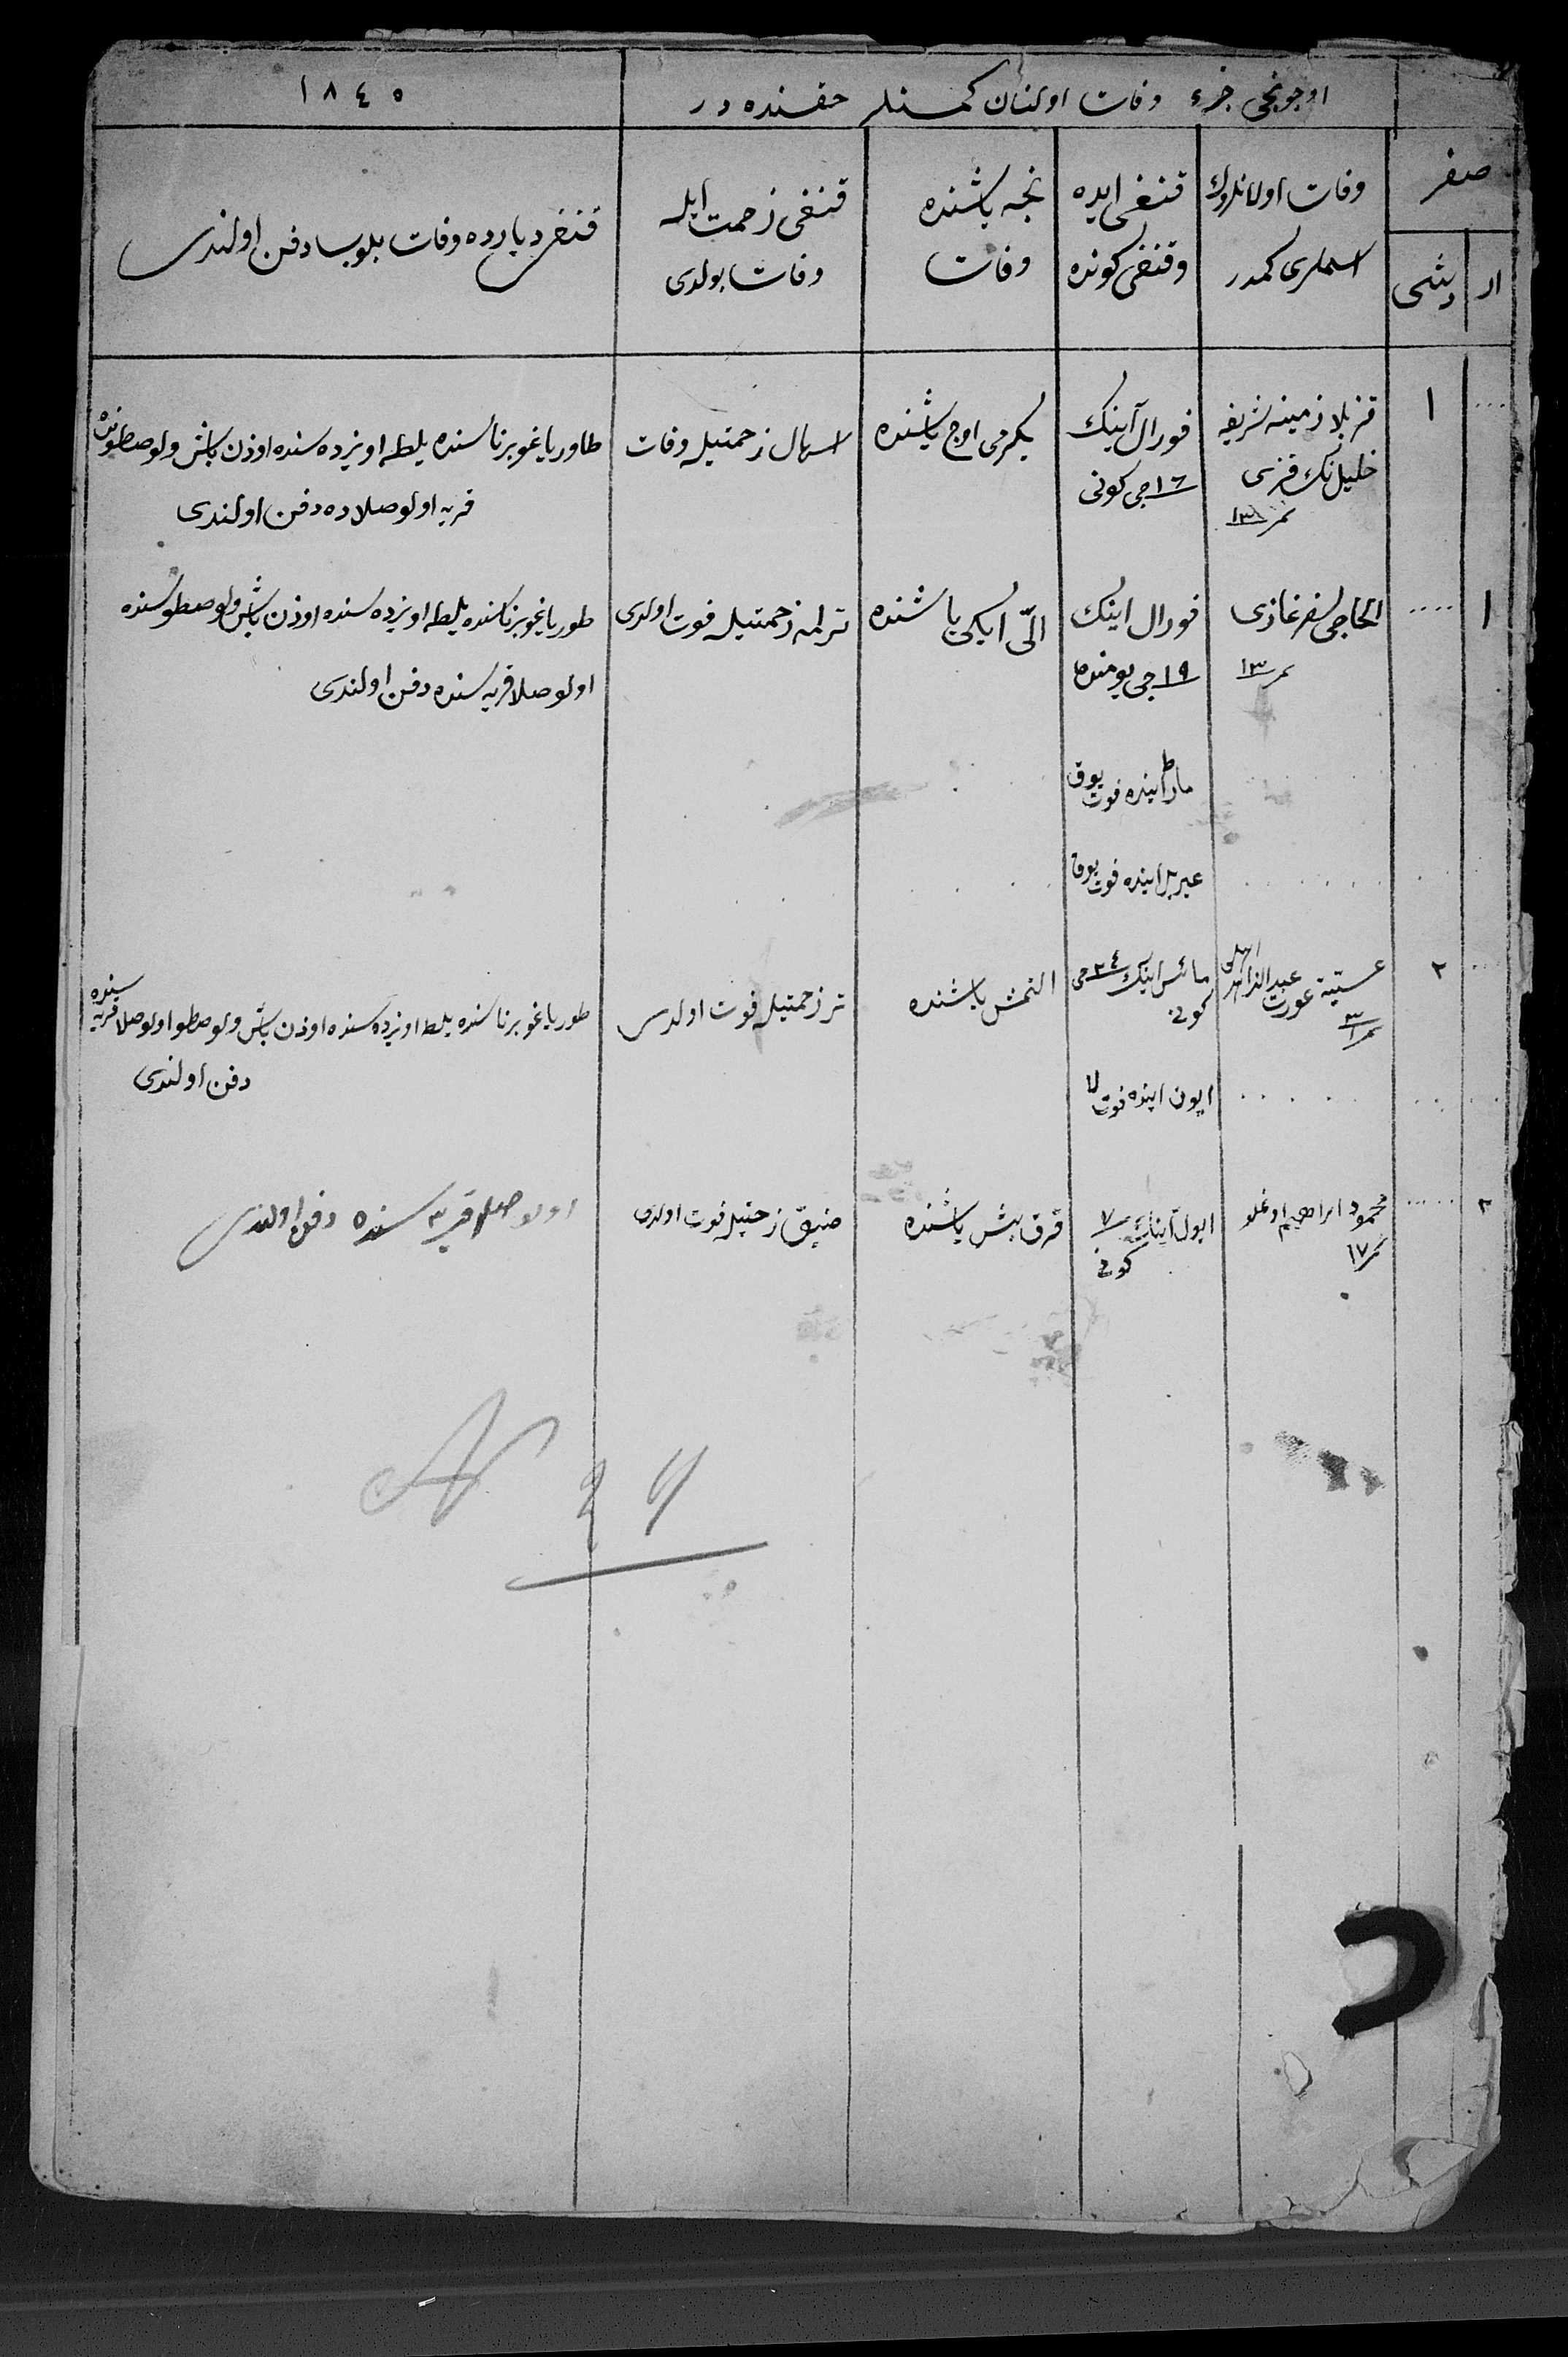 اوچونجی جزء وفات اولنان كمسنلر حقنده در
١٨٤٥
صفر
ار
ديشی
وفات اولانلروڭ
اسملری كمدر
قنغی ايده
وقنغی كونده
نچه ياشنده
وفات
قنغی زحمت ايله
وفات بولدی
قنغی ديارده وفات بلوبسا دفن اولندی
١
قزبلا زمينه شريفه
خليل نڭ قزی
نمر ١٣
فورال آينڭ
١٦ جی كونی
يكرمی اوچ ياشنده
اسهال زحمتيله وفات
طاوريا غوبرناسنده يلطه اويزده سنده اوذن باش ولوصطوسنده
قريه اولوصلاده دفن اولندی
١
الحاجی سفر غازی
نمر ١٣
فورال اينڭ
١٩ جی يومنده
اللّی ايكی ياشنده
ترلمه زحمتيله فوت اولدی
طوريا غوبرناسنده يلطه اويزده سنده اوذن باش ولوصطوسنده
اولوصلا قريه سنده دفن اولندی
مارط اينده فوت يوق
عبريل اينده فوت يوق
٢
عستيه عورت عبد الذاهر اهلی
نمر ٣
مائس اينڭ ٢٤ جی
كونی
التمش ياشنده
تر زحمتيله فوت اولدی
طوريا غوبرناسنده يلطه اويزده سنده اوذن باش ولوصطو اولوصلا قريه سنده
دفن اولندی
ايون اينده فوت لا
٢
محمود ابراهيم اوغلو
نمر ١٧
ايول آينڭ ٧
كونی
قرق بش ياشنده
ضيق زحمتيله فوت اولدی
اولوصلا قريه سنده دفن اولندی